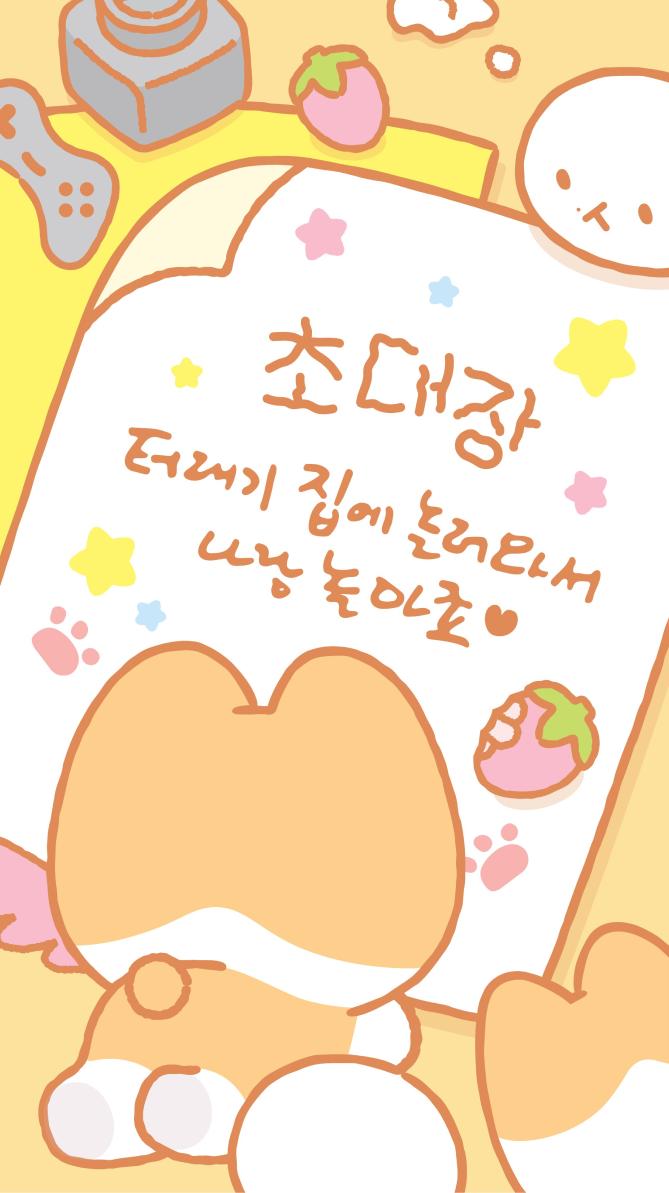 초대장
터래기 집에 놀러와서
나랑 놀아죠♥